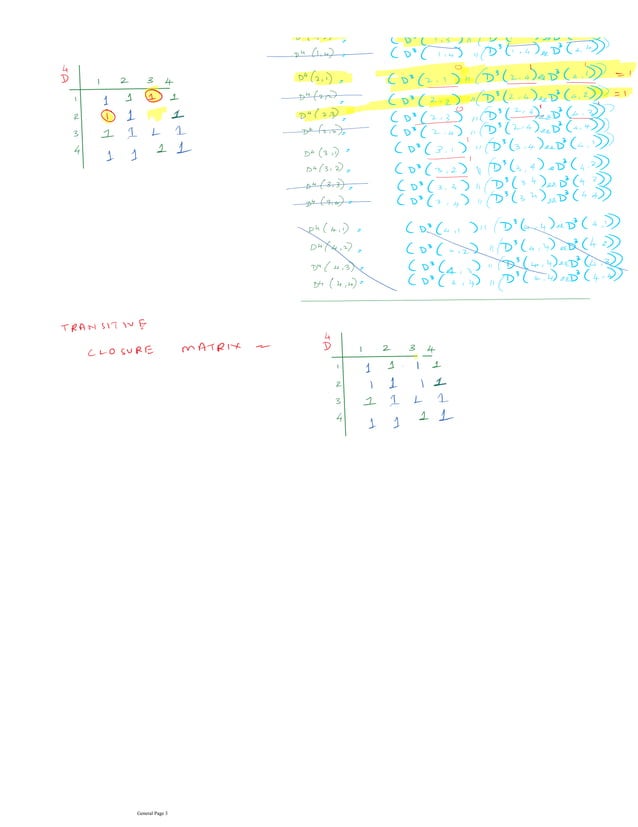 D⁴(1,4) = (D³(1,4) || (D³(1,4) && D³(4,4))
D⁴(2,1) = (D³(2,1) || (D³(2,4) && D³(4,1)) = 1
D⁴(2,2) = (D³(2,2) || (D³(2,4) && D³(4,2)) = 1
D⁴(2,3) = (D³(2,3) || (D³(2,4) && D³(4,3))
(D³(2,4) || (D³(2,4) && D³(4,4))
D⁴(3,1) = (D³(3,1) || (D³(3,4) && D³(4,1))
D⁴(3,2) = (D³(3,2) || (D³(3,4) && D³(4,2))
D⁴(3,3) = (D³(3,3) || (D³(3,4) && D³(4,3))
D⁴(3,4) = (D³(3,4) || (D³(3,4) && D³(4,4))
D⁴(4,1) = (D³(4,1) || (D³(4,4) && D³(4,1))
D⁴(4,2) = (D³(4,2) || (D³(4,4) && D³(4,2))
D⁴(4,3) = (D³(4,3) || (D³(4,4) && D³(4,3))
D⁴(4,4) = (D³(4,4) || (D³(4,4) && D³(4,4))
4
D 1 2 3 4
1 1 1 1 1
2 1 1 1
3 1 1 1 1
4 1 1 1 1
TRANSITIVE
CLOSURE MATRIX -
4
D 1 2 3 4
1 1 1 1 1
2 1 1 1 1
3 1 1 1 1
4 1 1 1 1
General Page 3